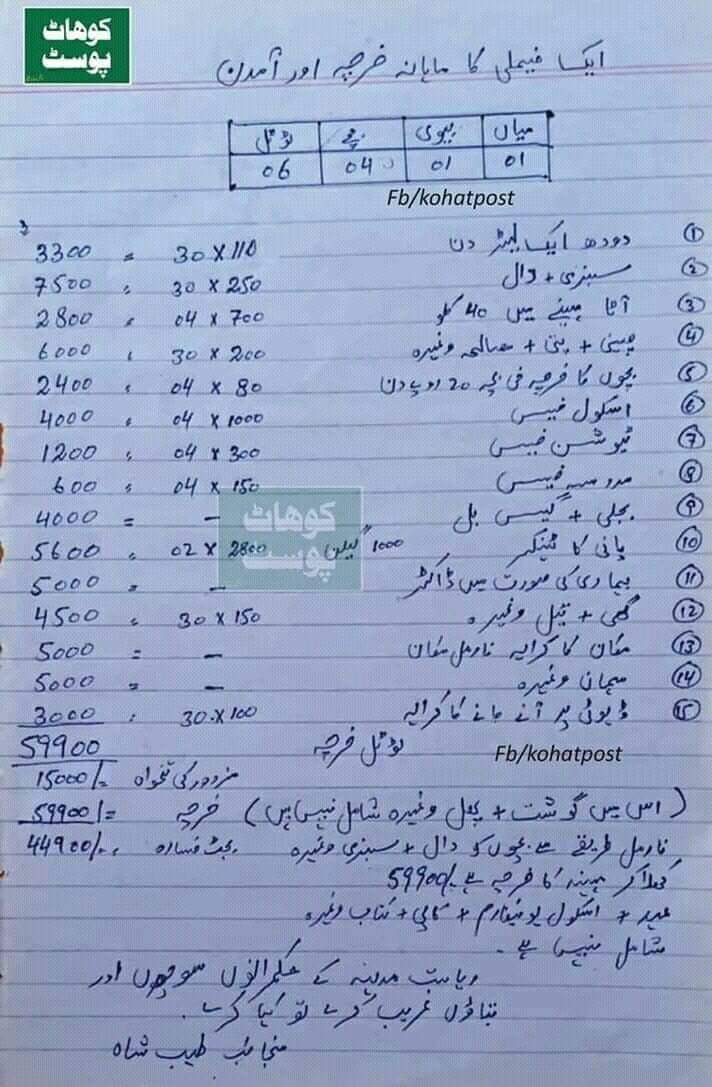 کوہاٹ
پوسٹ
ایک فیملی کا ماہانہ خرچہ اور آمدن
میاں بیوی بچے ٹوٹل
01 01 04 06
Fb/kohatpost
① دودھ ایک لیٹر دن 30 x 110 = 3300
② سبزی + دال 30 x 250 = 7500
③ آٹا مہینے میں 40 کلو 04 x 700 = 2800
④ چینی + پتی + مصالحہ وغیرہ 30 x 200 = 6000
⑤ بچوں کا خرچہ فی بچہ 20 روپے دن 04 x 80 = 2400
⑥ اسکول فیس 04 x 1000 = 4000
⑦ ٹیوشن فیس 04 x 300 = 1200
⑧ مدرسہ فیس 04 x 150 = 600
⑨ بجلی + گیس بل - = 4000
⑩ پانی کا ٹینکر 1000 گیلن 02 x 2800 = 5600
کوہاٹ
پوسٹ
⑪ بیماری کی صورت میں ڈاکٹر - = 5000
⑫ گھی + تیل وغیرہ 30 x 150 = 4500
⑬ مکان کا کرایہ نارمل مکان - = 5000
⑭ مہمان وغیرہ - = 5000
⑮ ڈیوٹی پر آنے جانے کا کرایہ 30 x 100 = 3000
ٹوٹل خرچہ 59900
Fb/kohatpost
مزدور کی تنخواہ 15000/=
(اس میں گوشت + پھل وغیرہ شامل نہیں ہیں) خرچہ 59900/=
نارمل طریقے سے بچوں کو دال + سبزی وغیرہ بجٹ خسارہ 44900/=
کھلا کر مہینہ کا خرچہ ہے 59900/=
عید + اسکول یونیفارم + کاپی + کتاب وغیرہ
شامل نہیں ہے۔
ریاست مدینہ کے حکمرانوں سوچوں اور
بتاؤں غریب کرے تو کیا کرے۔
منجانب طیب شاہ